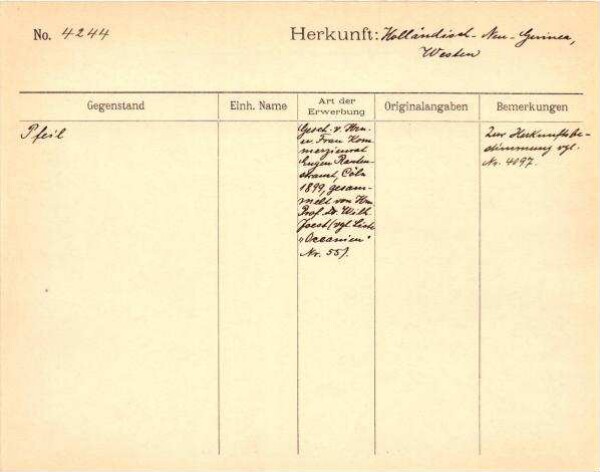 No. 4244
Herkunft: Holländisch-Neu-Guinea,
Westen
Gegenstand
Einh. Name
Art der
Erwerbung
Originalangaben
Bemerkungen
Pfeil
Gesch. v. Hrn.
u. Frau Kom-
merzienrat
Eugen Rauten-
strauch, Cöln
1899, gesam-
melt von Hrn.
Prof. Dr. Wilh.
Joest (vgl. Liste
"Oceanien"
Nr. 55).
Zur Herkunftsbe-
stimmung vgl.
Nr. 4097.